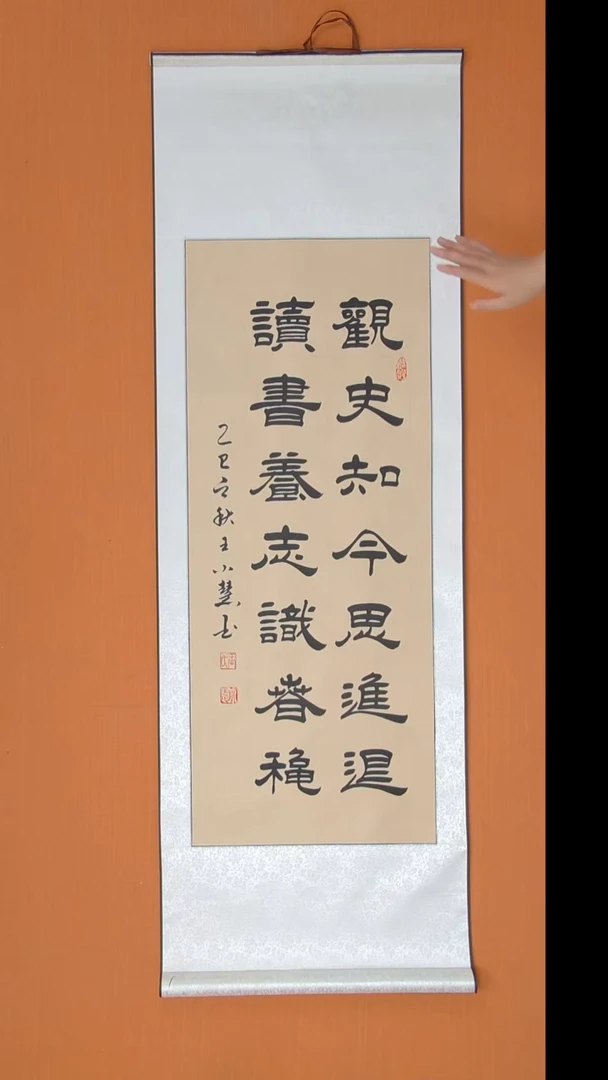 觀史知今思進退
讀書養志識春秋
乙巳之秋王小慧書